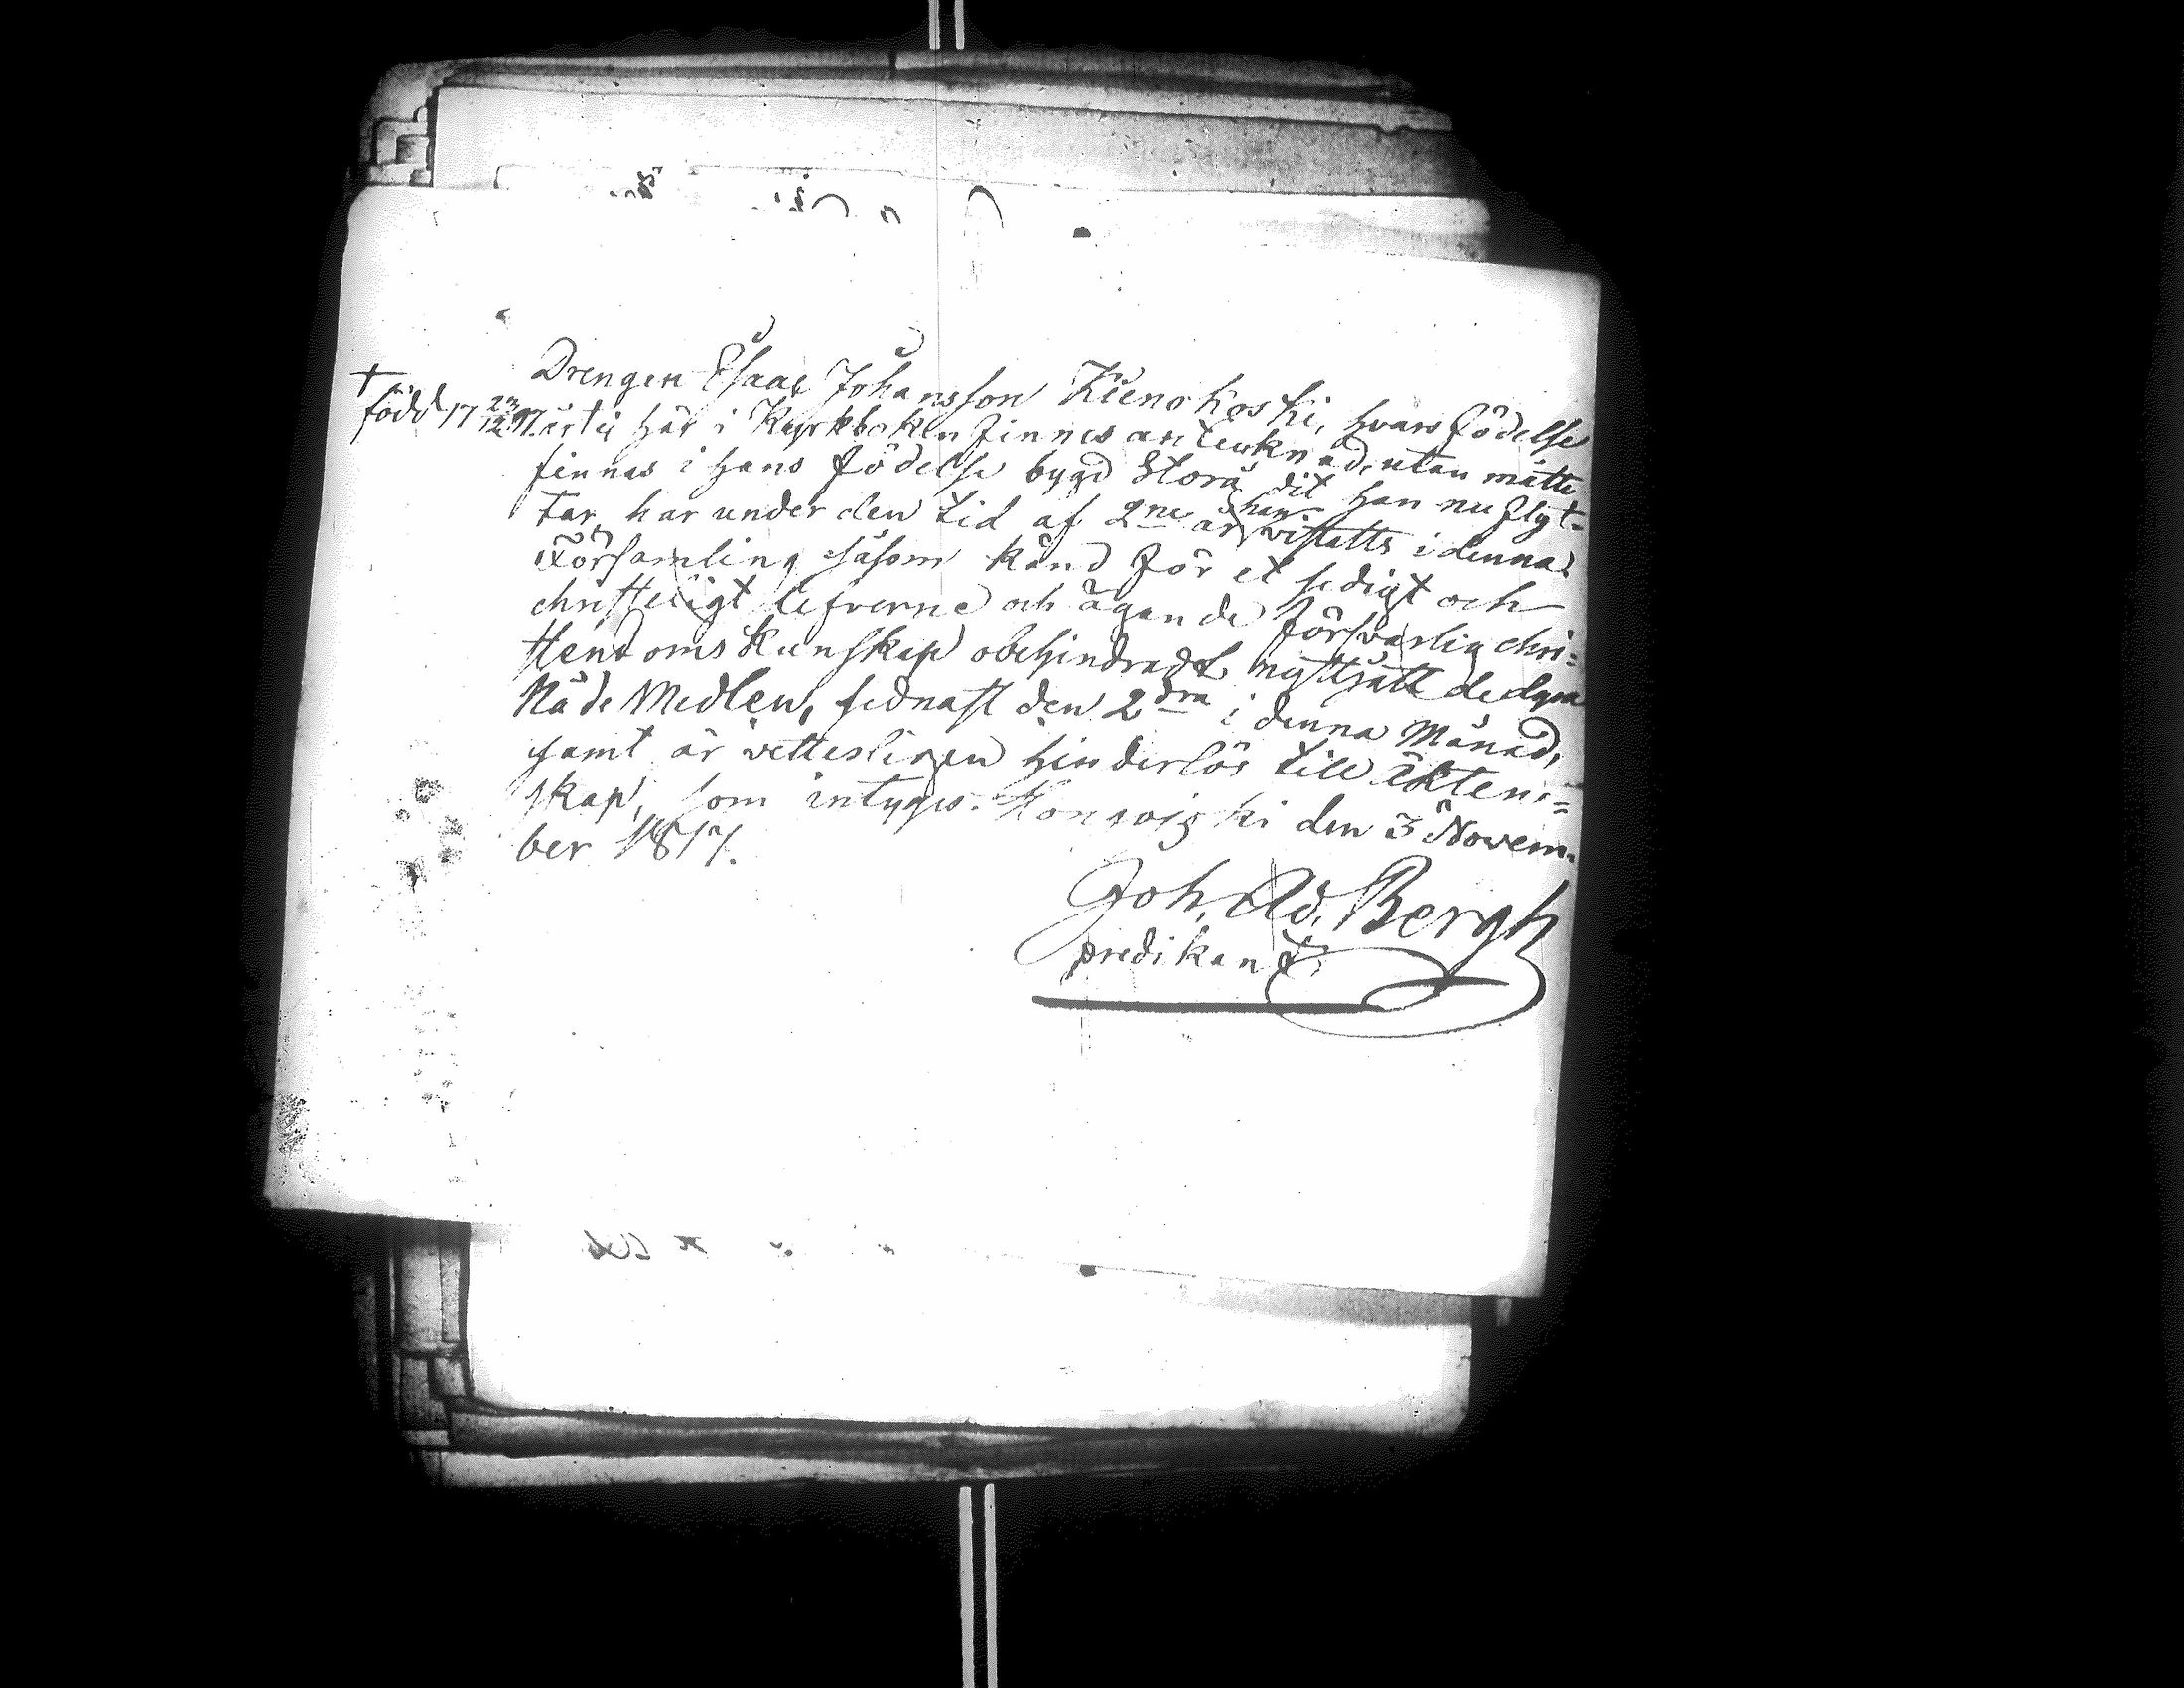 Drengen Esaas Johansson Kienokoski, hvars födelse
† född 17 23/12 97. årtij här i Kyrkboken finnes antecknad, utan måtte
finnas i hans födelse bygd Storå dit han nu flyt-
tar, har under den tid af 2ne år han vistatts i denna
Församling såsom känd för et sedigt och
christeligt lefverne och ägande försvarlig chri=
stendoms kunskap obehindradt nyttjatt de dyra
Nåde Medlen, sednast den 2dra i denna Månad,
samt är vetterligen hinderlös till äkten=
skap, som intygas. den 3 Novem-
ber 1817.
Joh. Ad. Bergh
predikant